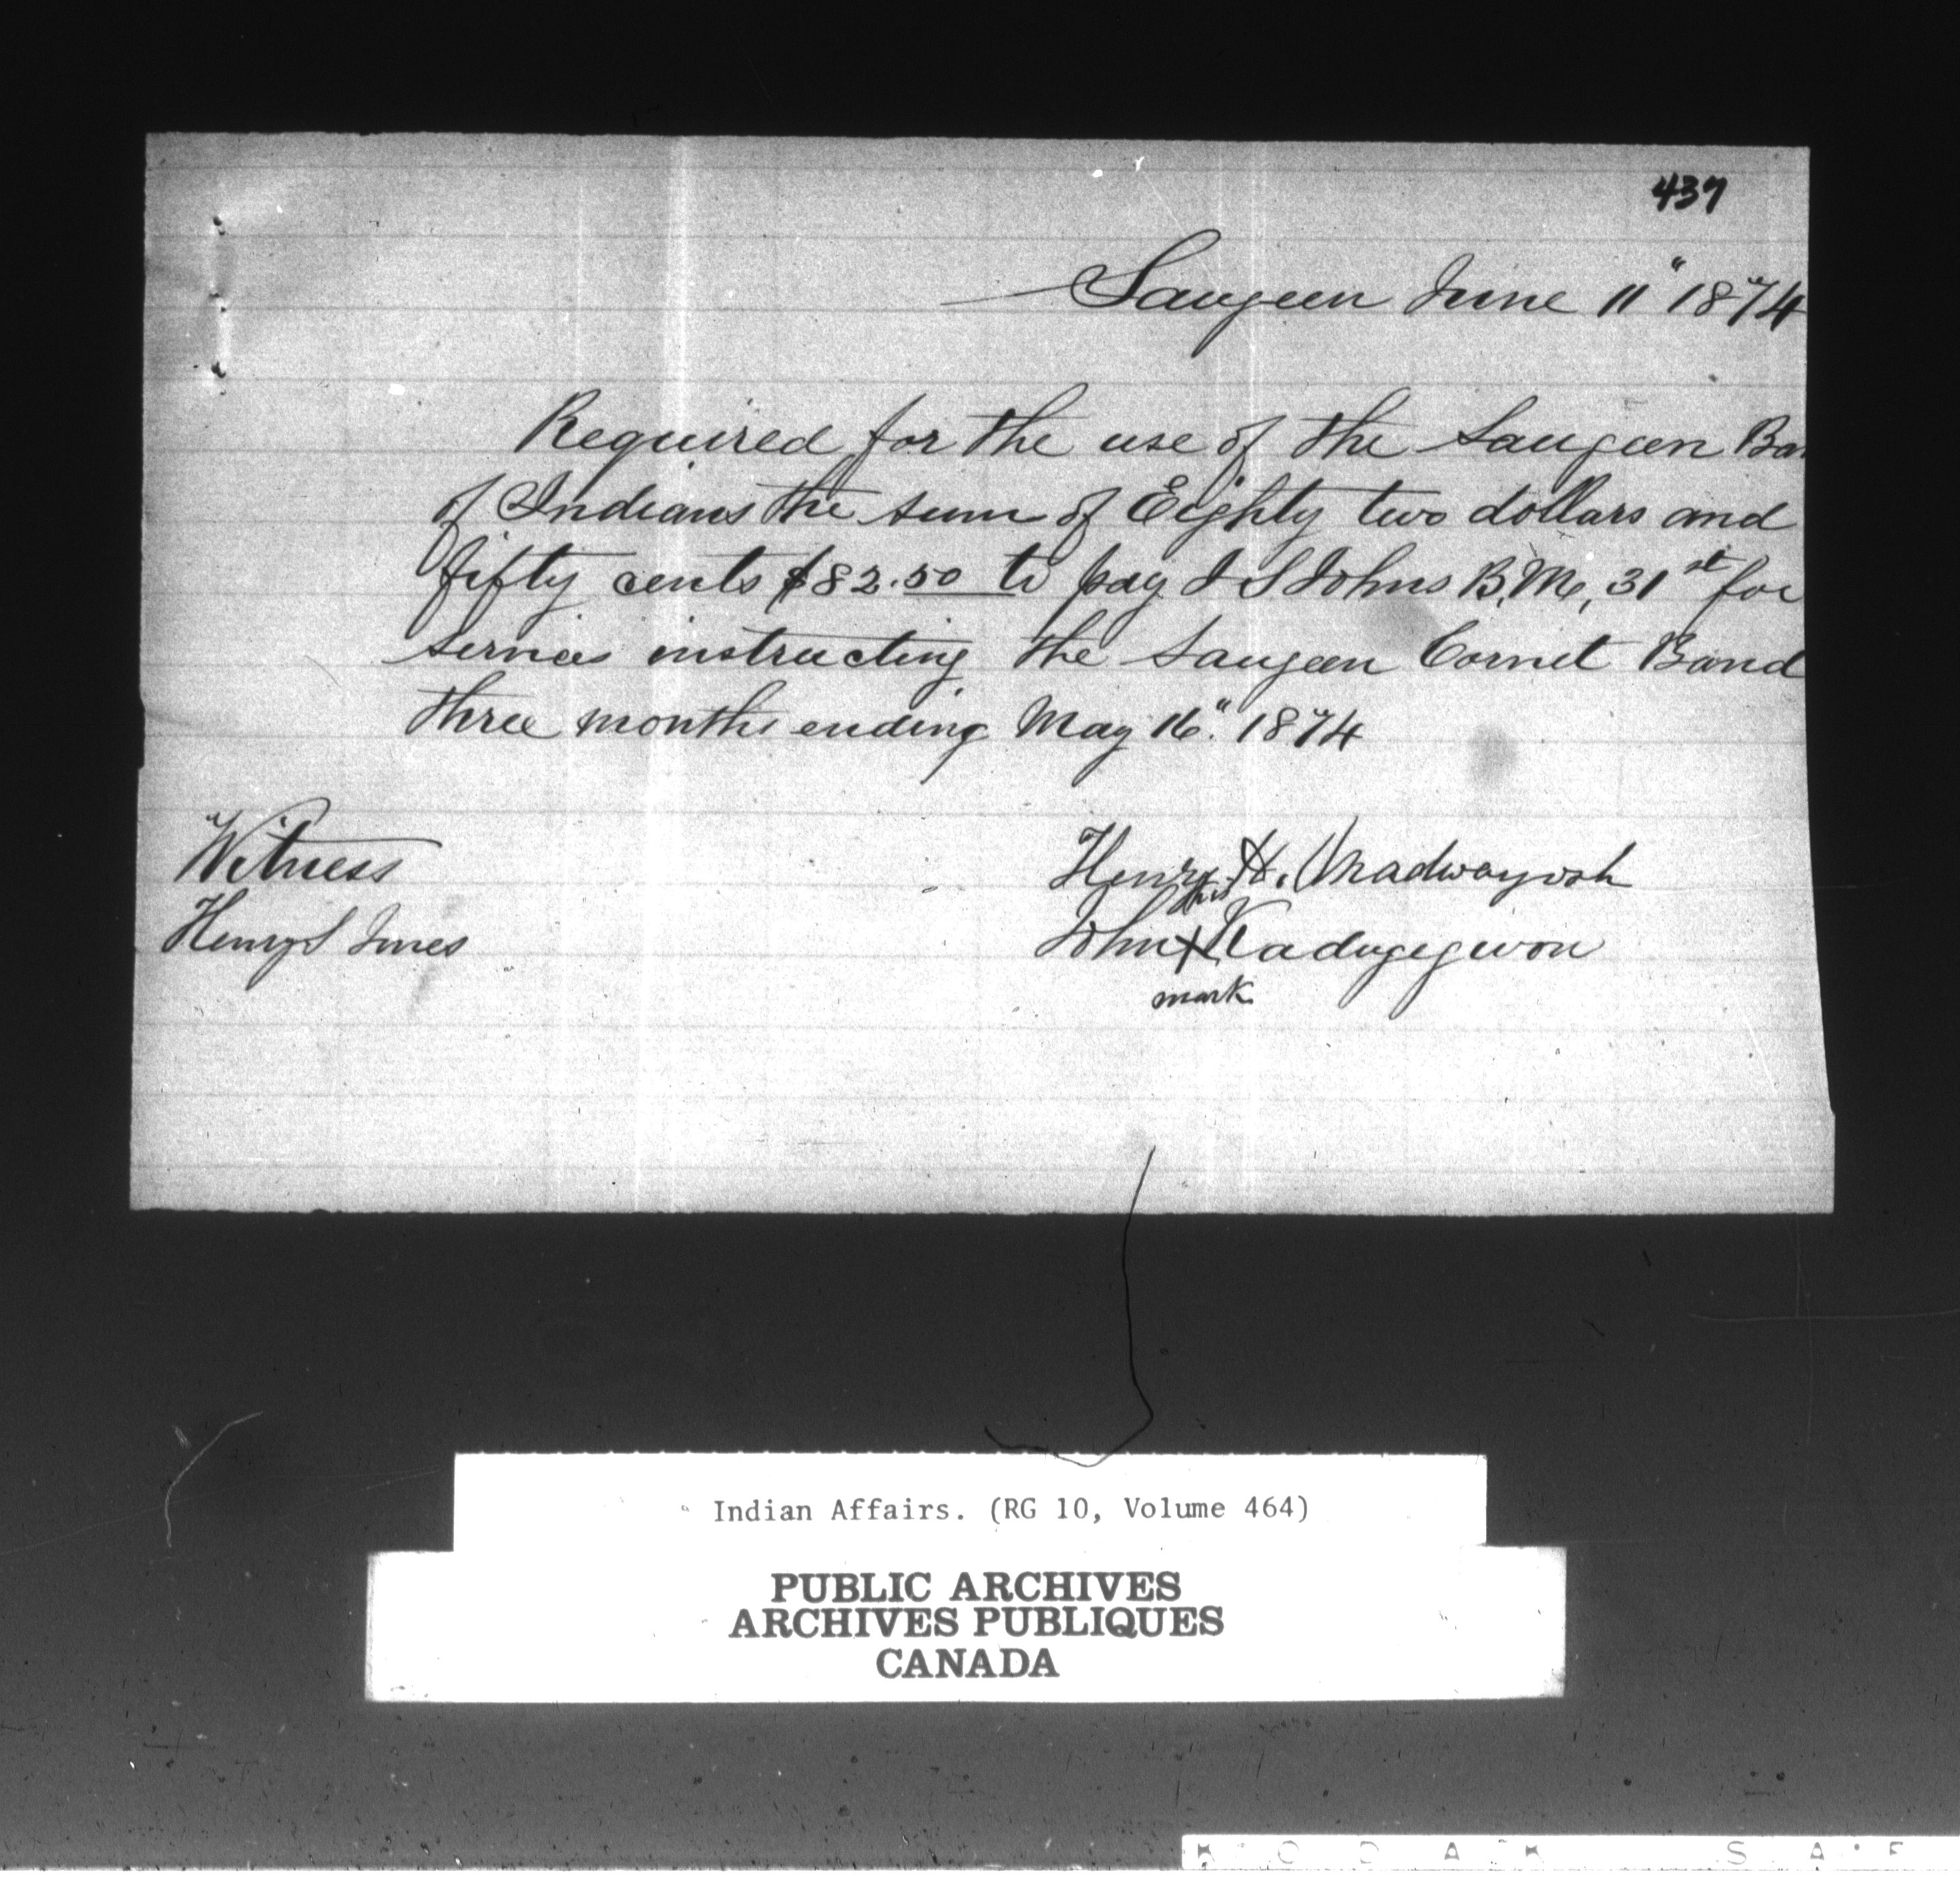 437
Saugeen June 11" 1874
Required for the use of the Saugeen Ban
of Indians the sum of Eighty two dollars and
fifty cents $82.50 to pay J S Johns B.M., 31st for
services instructing the Saugeen Cornet Band
three months ending May 16". 1874
Witness
Henry H. Madwayosh
his
Henry S Jones
John X Kadugegwon
mark
Indian Affairs. (RG 10, Volume 464)
PUBLIC ARCHIVES
ARCHIVES PUBLIQUES
CANADA
KODAK SAF